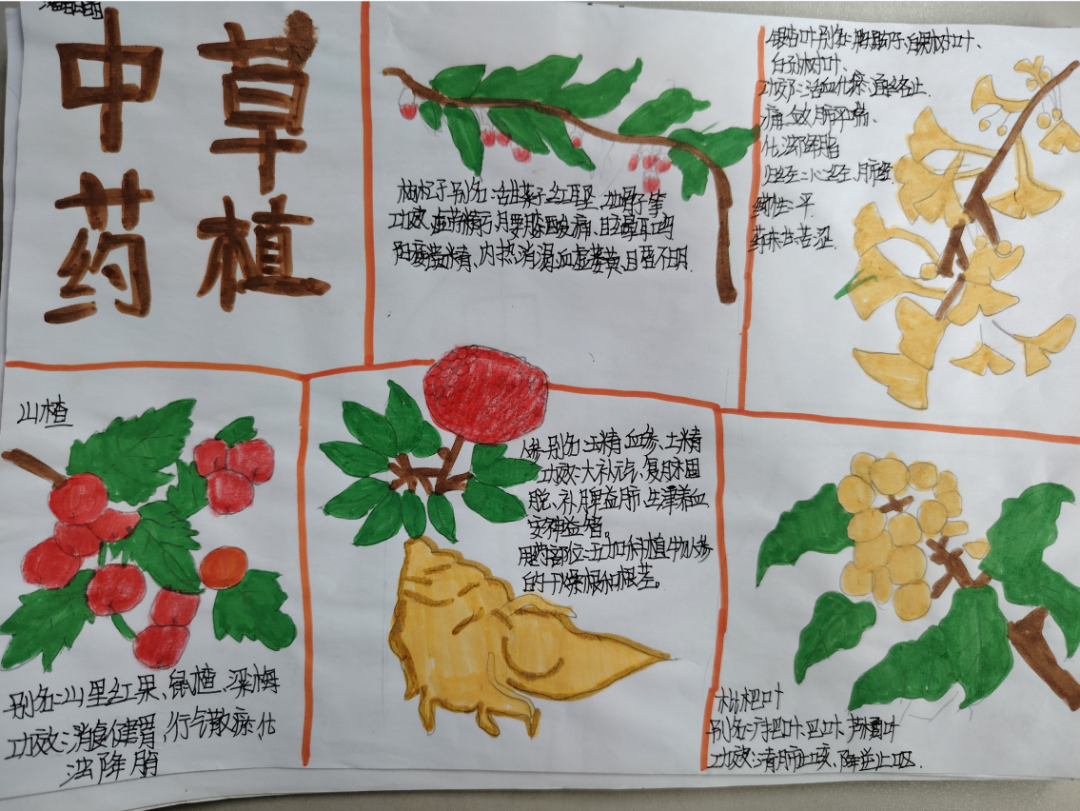 中草
药植
枸杞子别名:甜菜子、红耳坠、地骨子等
功效:虚劳精亏、腰膝酸痛、目眩耳鸣
阳痿遗精、内热消渴、血虚萎黄、目昏不明.
银杏叶别名:鸭脚子、白果树叶、
白孙树叶、
功效:活血化瘀、通络止
痛、敛肺平喘、
化浊降脂
归经:心经、肺经
药性:平
药味:甘苦涩
山楂
别名:山里红果、鼠楂、
功效:消食健胃,行气散瘀、化
浊降脂
人参别名:玉精、血参、土精
功效:大补元气、复脉固
脱、补脾益肺、生津养血
安神益智。
用药部位:五加科植物人参
的干燥根和根茎。
枇杷叶
别名:巴叶、芦橘叶
功效:清肺止咳、降逆止呕.